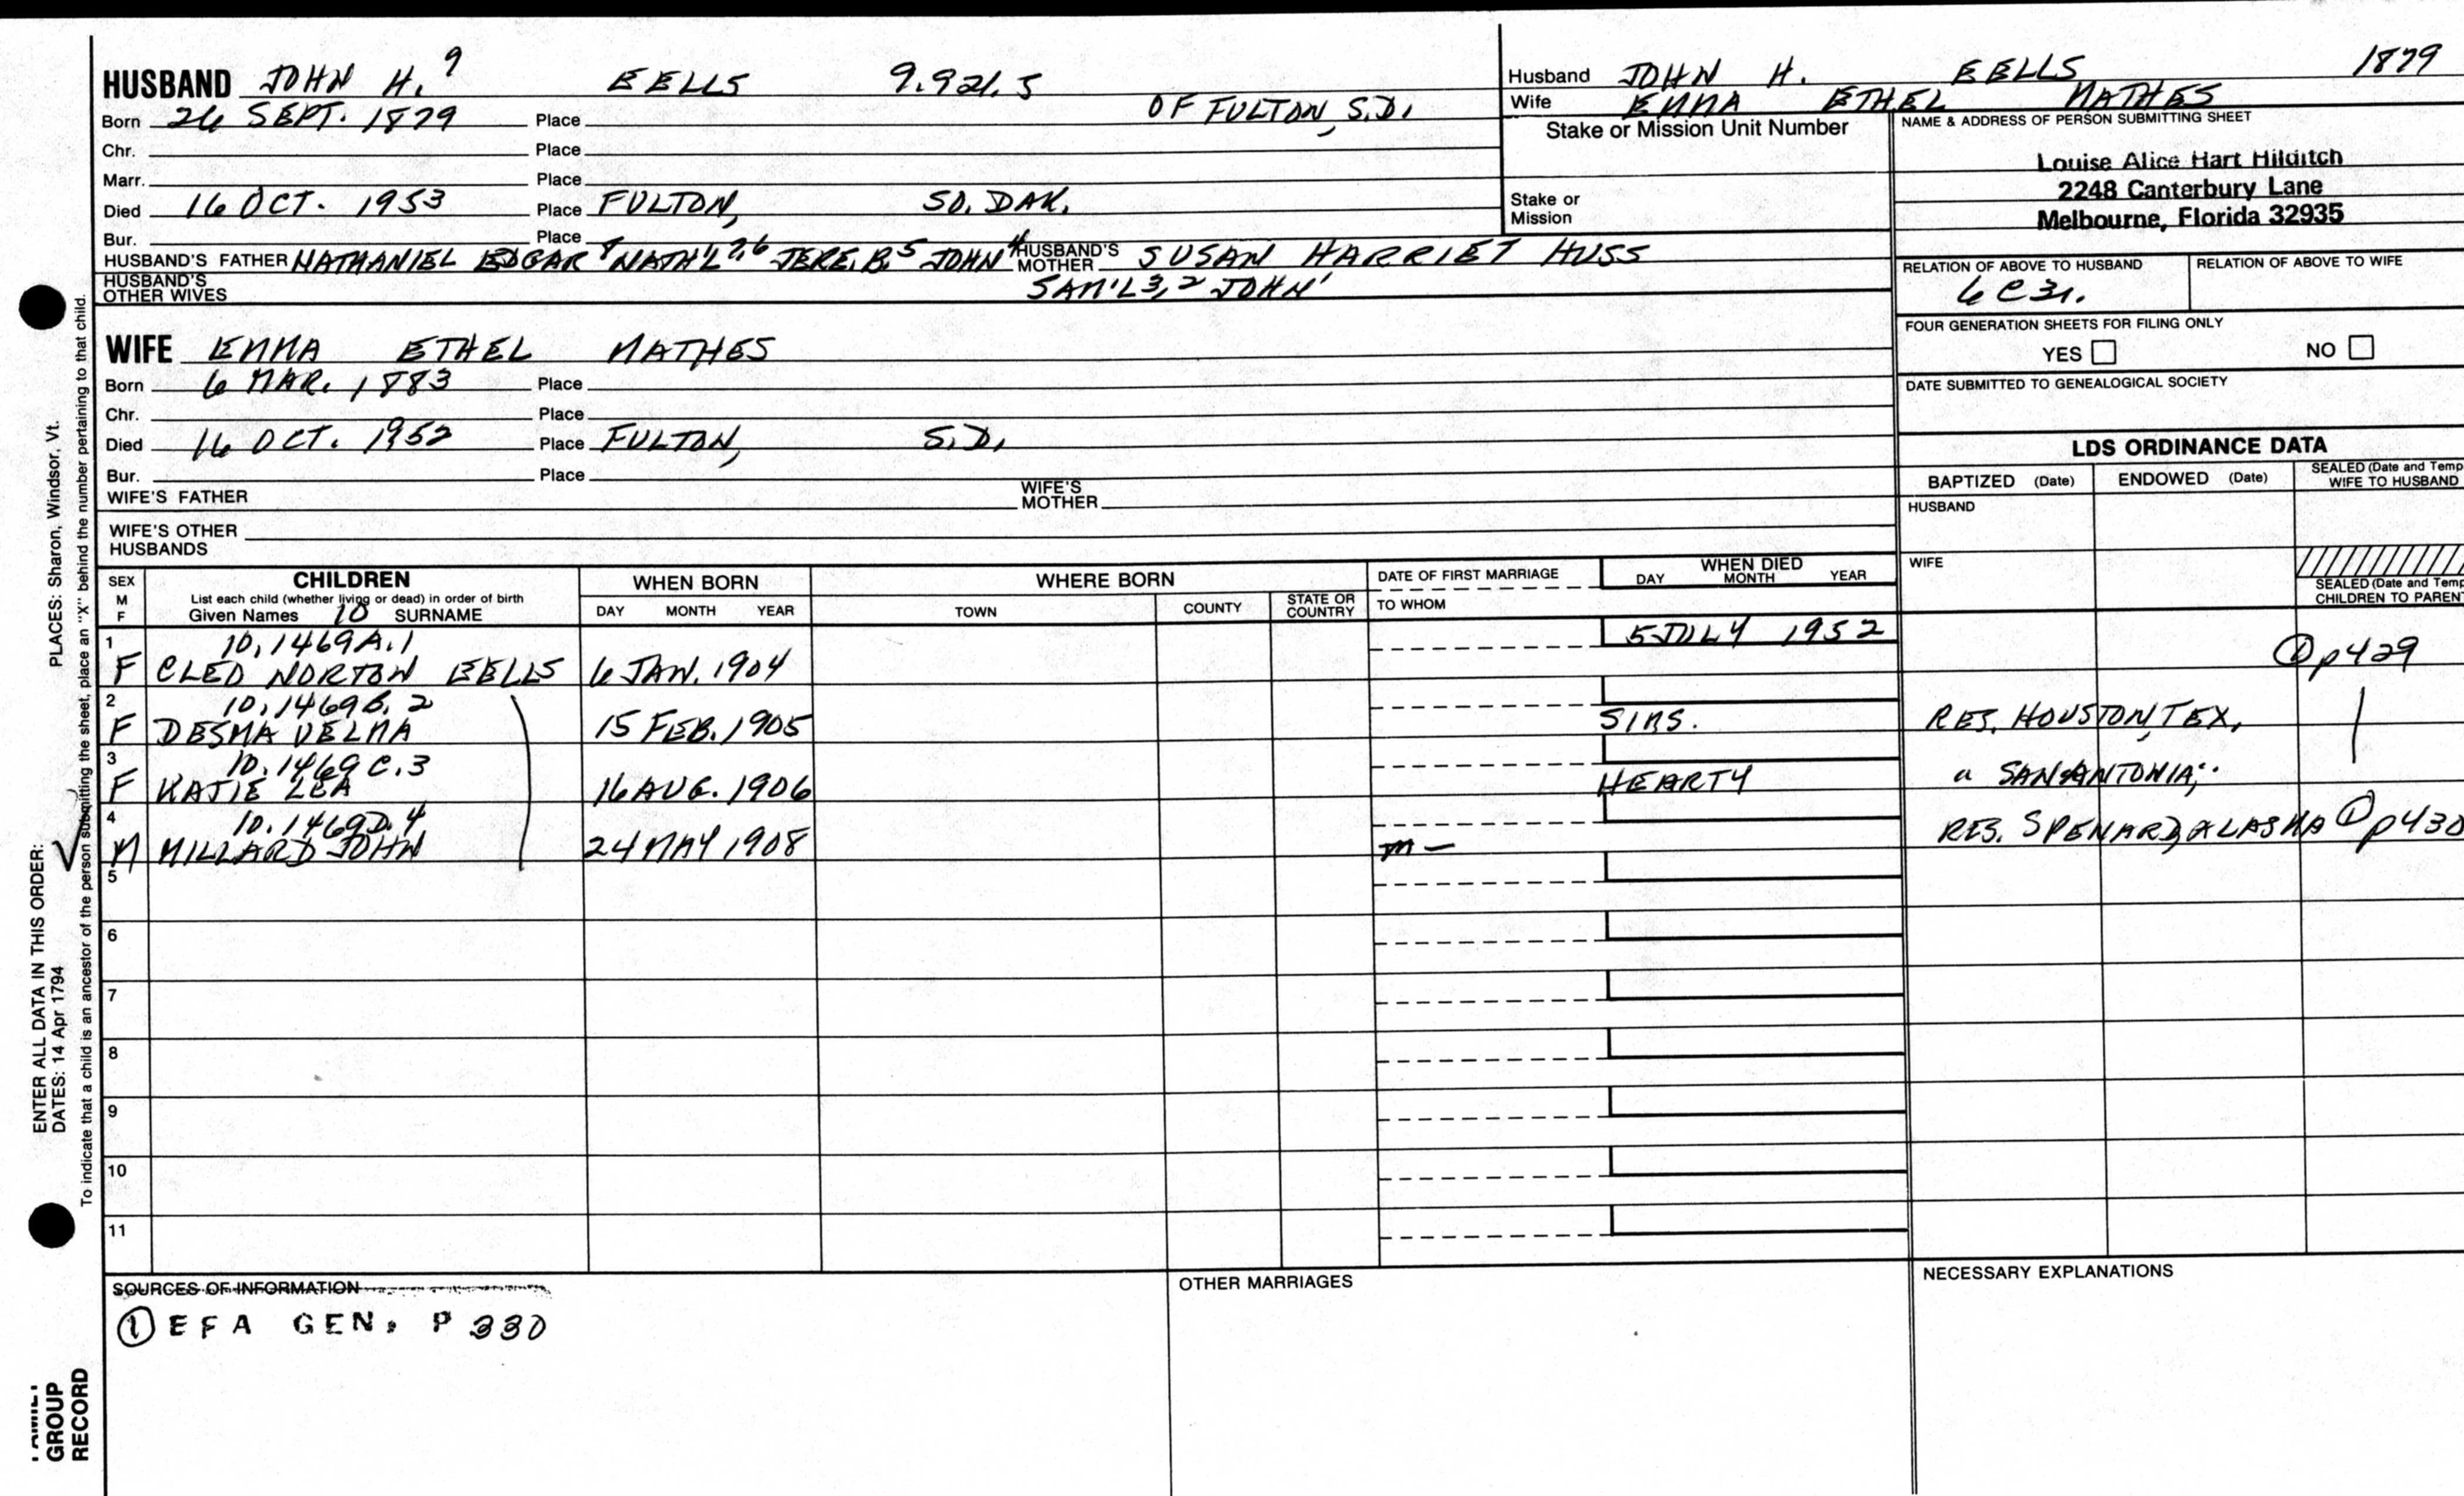 HUSBAND JOHN H.⁹ EELLS 9.921.5
Born 26 SEPT. 1879 Place OF FULTON, S.D.
Chr. Place
Marr. Place
Died 16 OCT. 1953 Place FULTON, SO. DAK.
Bur. Place
HUSBAND'S FATHER NATHANIEL EDGAR⁸ NATH'L⁷,⁶ JERE. B.⁵ JOHN⁴ HUSBAND'S MOTHER SUSAN HARRIET HUSS
HUSBAND'S OTHER WIVES SAM'L³,² JOHN¹
Husband JOHN H. EELLS 1879
Wife EMMA ETHEL MATHES
Stake or Mission Unit Number
Stake or Mission
NAME & ADDRESS OF PERSON SUBMITTING SHEET
Louise Alice Hart Hilditch
2248 Canterbury Lane
Melbourne, Florida 32935
RELATION OF ABOVE TO HUSBAND RELATION OF ABOVE TO WIFE
6C3r.
FOUR GENERATION SHEETS FOR FILING ONLY
YES NO
DATE SUBMITTED TO GENEALOGICAL SOCIETY
WIFE EMMA ETHEL MATHES
Born 6 MAR. 1883 Place
Chr. Place
Died 16 OCT. 1952 Place FULTON, S.D.
Bur. Place
WIFE'S FATHER WIFE'S MOTHER
WIFE'S OTHER HUSBANDS
LDS ORDINANCE DATA
BAPTIZED (Date) ENDOWED (Date) SEALED (Date and Temp
WIFE TO HUSBAND
HUSBAND
WIFE
SEALED (Date and Temp
CHILDREN TO PARENT
SEX
M
F
CHILDREN
List each child (whether living or dead) in order of birth
Given Names 10 SURNAME
WHEN BORN
DAY MONTH YEAR
WHERE BORN
TOWN COUNTY STATE OR COUNTRY
DATE OF FIRST MARRIAGE
TO WHOM
WHEN DIED
DAY MONTH YEAR
1 10.1469A.1 5 JULY 1952
F CLEO NORTON EELLS 6 JAN. 1904 ① p429
2 10.1469B.2
F DESMA VELMA 15 FEB. 1905 SIMS. RES. HOUSTON, TEX,
3 10.1469C.3
F KATIE LEA 16 AUG. 1906 HEARTY " SAN ANTONIA;
4 10.1469D.4
M MILLARD JOHN 24 MAY 1908 m — RES. SPENARD, ALASKA ① p430
5
6
7
8
9
10
11
SOURCES OF INFORMATION
① EFA GEN. P 330
OTHER MARRIAGES
NECESSARY EXPLANATIONS
ENTER ALL DATA IN THIS ORDER:
DATES: 14 Apr 1794 PLACES: Sharon, Windsor, Vt.
To indicate that a child is an ancestor of the person submitting the sheet, place an "X" behind the number pertaining to that child.
GROUP
RECORD